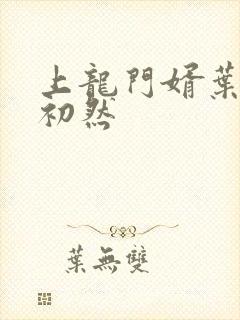 上龍門婿葉
初然
葉無雙